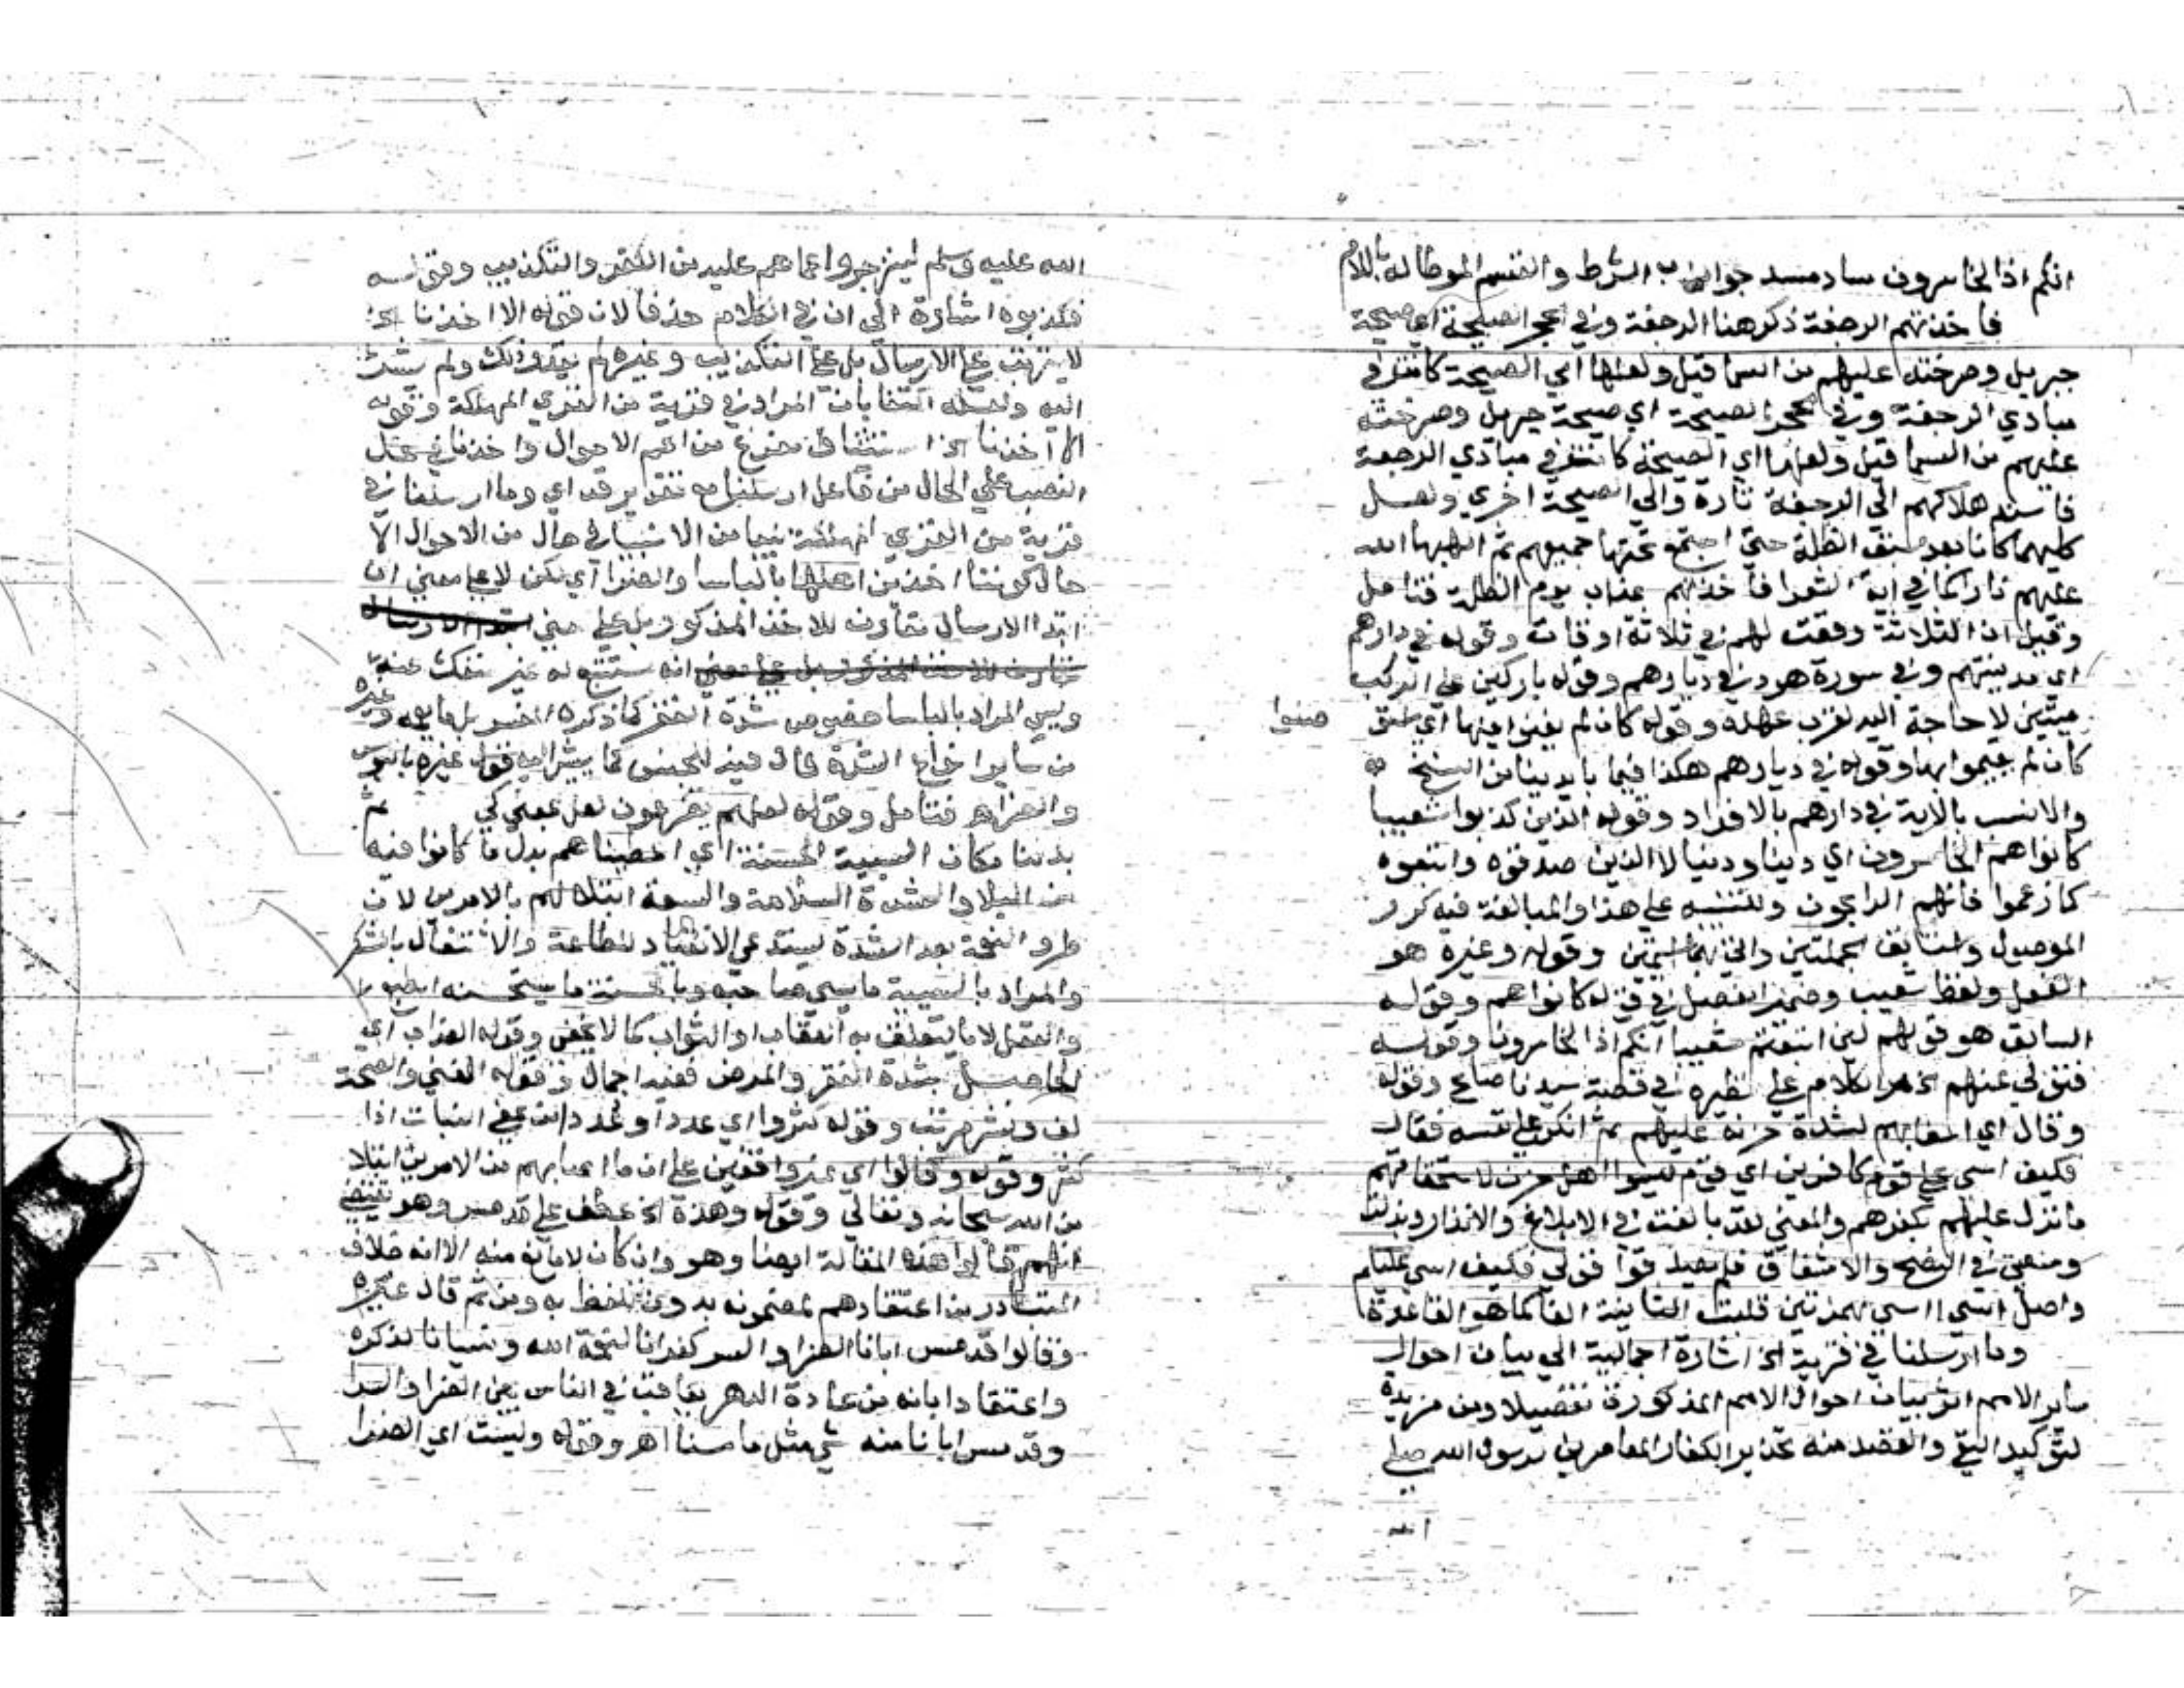 انكم اذا لخاسرون ساد مسد جواب الشرط والقسم الموطا له باللام
فاخذتهم الرجفة ذكر هنا الرجفة وفي الحجر الصيحة اي صيحة
جبريل وصرخته عليهم من السما قيل ولعلها اي الصيحة كانت في
مبادي الرجفة وفي الحجر الصيحة اي صيحة جبريل وصرخته
عليهم من السما قيل ولعلها اي الصيحة كانت في مبادي الرجفة
فاسند هلاكهم الى الرجفة تارة والى الصيحة اخري ولعل
كليهما كانا بعد سبق الظلة حتى اجتمع تحتها جميعهم ثم الهبها الله
عليهم نارا كما في اية الشعرا فاخذهم عذاب يوم الظلة فتامل
وقيل ان الثلاثة وقعت لهم في ثلاثة اوقات وقوله في دارهم
اي مدينتهم وفي سورة هود في ديارهم وقوله باركين على الركب
ميتين لا حاجة اليه لقرب عهده وقوله كان لم يغنوا فيها اي
كان لم يقيموا بها وقوله في ديارهم هكذا فيما بايدينا من النسخ
والانسب بالاية في دارهم بالافراد وقوله الذين كذبوا شعيبا
كانوا هم الخاسرون اي دينا ودنيا لا الذين صدقوه واتبعوه
كما زعموا فانهم الرابحون وللتنبيه على هذا والمبالغة فيه كرر
الموصول واستانف بجملتين واتى بهما اسميتين وقوله وغيره هو
الفعل ولفظ شعيب وضمير الفصل في قوله كانوا هم وقوله
السابق هو قولهم لئن اتبعتم شعيبا انكم اذا لخاسرون وقوله
فتولى عنهم الكلام على نظيره في قصة سيدنا صالح وقوله
وقال اي لشدة حزنه عليهم ثم انكر على نفسه فقال
فكيف اسى على قوم كافرين اي قوم ليسوا اهل حزن لاستحقاقهم
ما نزل عليهم بكفرهم والمعنى لقد بالغت في الابلاغ والانذار وبذلت
وسعي في النصح والاشفاق فلم تصدقوا قولي فكيف اسى عليكم
واصل اسى ااسى بهمزتين قلبت الثانية الفا كما هو القاعدة
وما ارسلنا في قرية الخ اشارة اجمالية الى بيان احوال
ساير الامم اثر بيان احوال الامم المذكورة تفصيلا ومن مزيدة
لتوكيد النفي والقصد منه تحذير الكفار المعاصرين لرسول الله صلى
الله
الله عليه وسلم لينزجروا عما هم عليه من الكفر والتكذيب وقوله
فكذبوه اشارة الى ان في الكلام حذفا لان قوله الا اخذنا الخ
لا يترتب على الارسال بل على التكذيب وغيره لم يقدر ذلك ولم يشر
اليه ولعله اكتفا بان المراد في قرية من القرى المهلكة وقوله
الا اخذنا الخ استثنا مفرغ من اعم الاحوال واخذنا في محل
النصب على الحال من فاعل ارسلنا مع تقدير قد اي وما ارسلنا في
قرية من القرى المهلكة نبيا من الانبيا في حال من الاحوال الا
حال كوننا اخذين اهلها بالباسا والضرا اي لكن لا على معنى ان
ابتدا الارسال مقارن للاخذ المذكور بل على معنى
انه مستتبع له غير منفك عنه
وليس المراد بالباسا خصوص شدة الفقر كما ذكره المفسر بل ما يعمه وغيره
من ساير انواع الشدة فال فيه للجنس كما يشير اليه قول غيره بالبوس
والضر اهـ فتامل وقوله لعلهم يضرعون لعل بمعنى كي ثم
بدلنا مكان السيية الحسنة اي اعطيناهم بدل ما كانوا فيه
من البلا والشدة السلامة والسعة ابتلا لهم بالامرين لان
طرو النعمة بعد الشدة يستدعي الانقياد للطاعة والاشتغال بالشكر
والمراد بالسيية ما يسي صاحبه وبالحسنة ما يستحسنه الطبع
والعقل لا ما يتعلق به العقاب او الثواب كما لا يخفى وقوله العذاب اي
الحاصل بشدة الفقر والمرض ففيه اجمال وقوله الغنى والصحة
لف ونشر مرتب وقوله كثروا اي عددا وعددا من عفى النبات اذا
كثر وقوله وقالوا اي غير واقفين على ان ما اصابهم من الامرين ابتلا
من الله سبحانه وتعالى وقوله وهذه الخ عطف على قد مس وهو يقتضي
انهم قالوا هذه المقالة ايضا وهو وان كان لا مانع منه الا انه خلاف
المتبادر من اعتقادهم لمضمونه بدون تلفظ به ومن ثم قال غيره
وقالوا قد مس اباءنا الضرا والسرا كفرانا لنعمة الله ونسيانا لذكره
واعتقادا بانه من عادة الدهر يعاقب في الناس بين الضرا والسرا
وقد مس ابانا منه شي مثل ما مسنا اهـ وقوله وليست اي الضرا